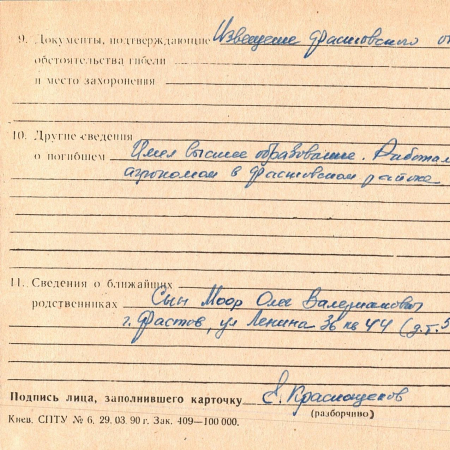 9. Документы, подтверждающие Извещение Фастовского
обстоятельства гибели
и место захоронения
10. Другие сведения
о погибшем Имел высшее образование. Работал
агрономом в Фастовском районе
11. Сведения о ближайших
родственниках Сын Моор Олег Валерианович
г. Фастов, ул Ленина 36 кв 44 (д.т. 5
Подпись лица, заполнившего карточку Е. Краснощеков
(разборчиво)
Киев. СПТУ № 6. 29. 03. 90 г. Зак. 409—100 000.